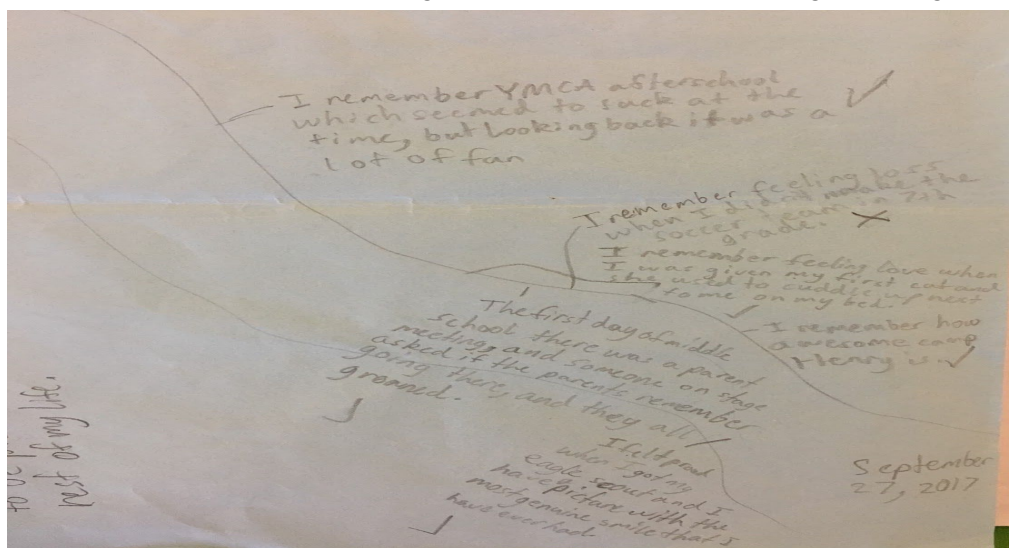 I remember YMCA afterschool
which seemed to suck at the
time, but looking back it was a
lot of fan
I remember feeling loss
when I didn't make the
soccer team in 7th
grade.
I remember feeling love when
I was given my first cat and
she used to cuddle up next
to me on my bed.
I remember how
awesome camp
Henry is.
The first day of middle
school there was a parent
meeting, and someone on stage
asked if the parents remember
going there, and they all
groaned.
I felt proud
when I got my
eagle scout and I
have picture with the
most genuine smile that I
have ever had.
September
27, 2017
to be
rest of my life.